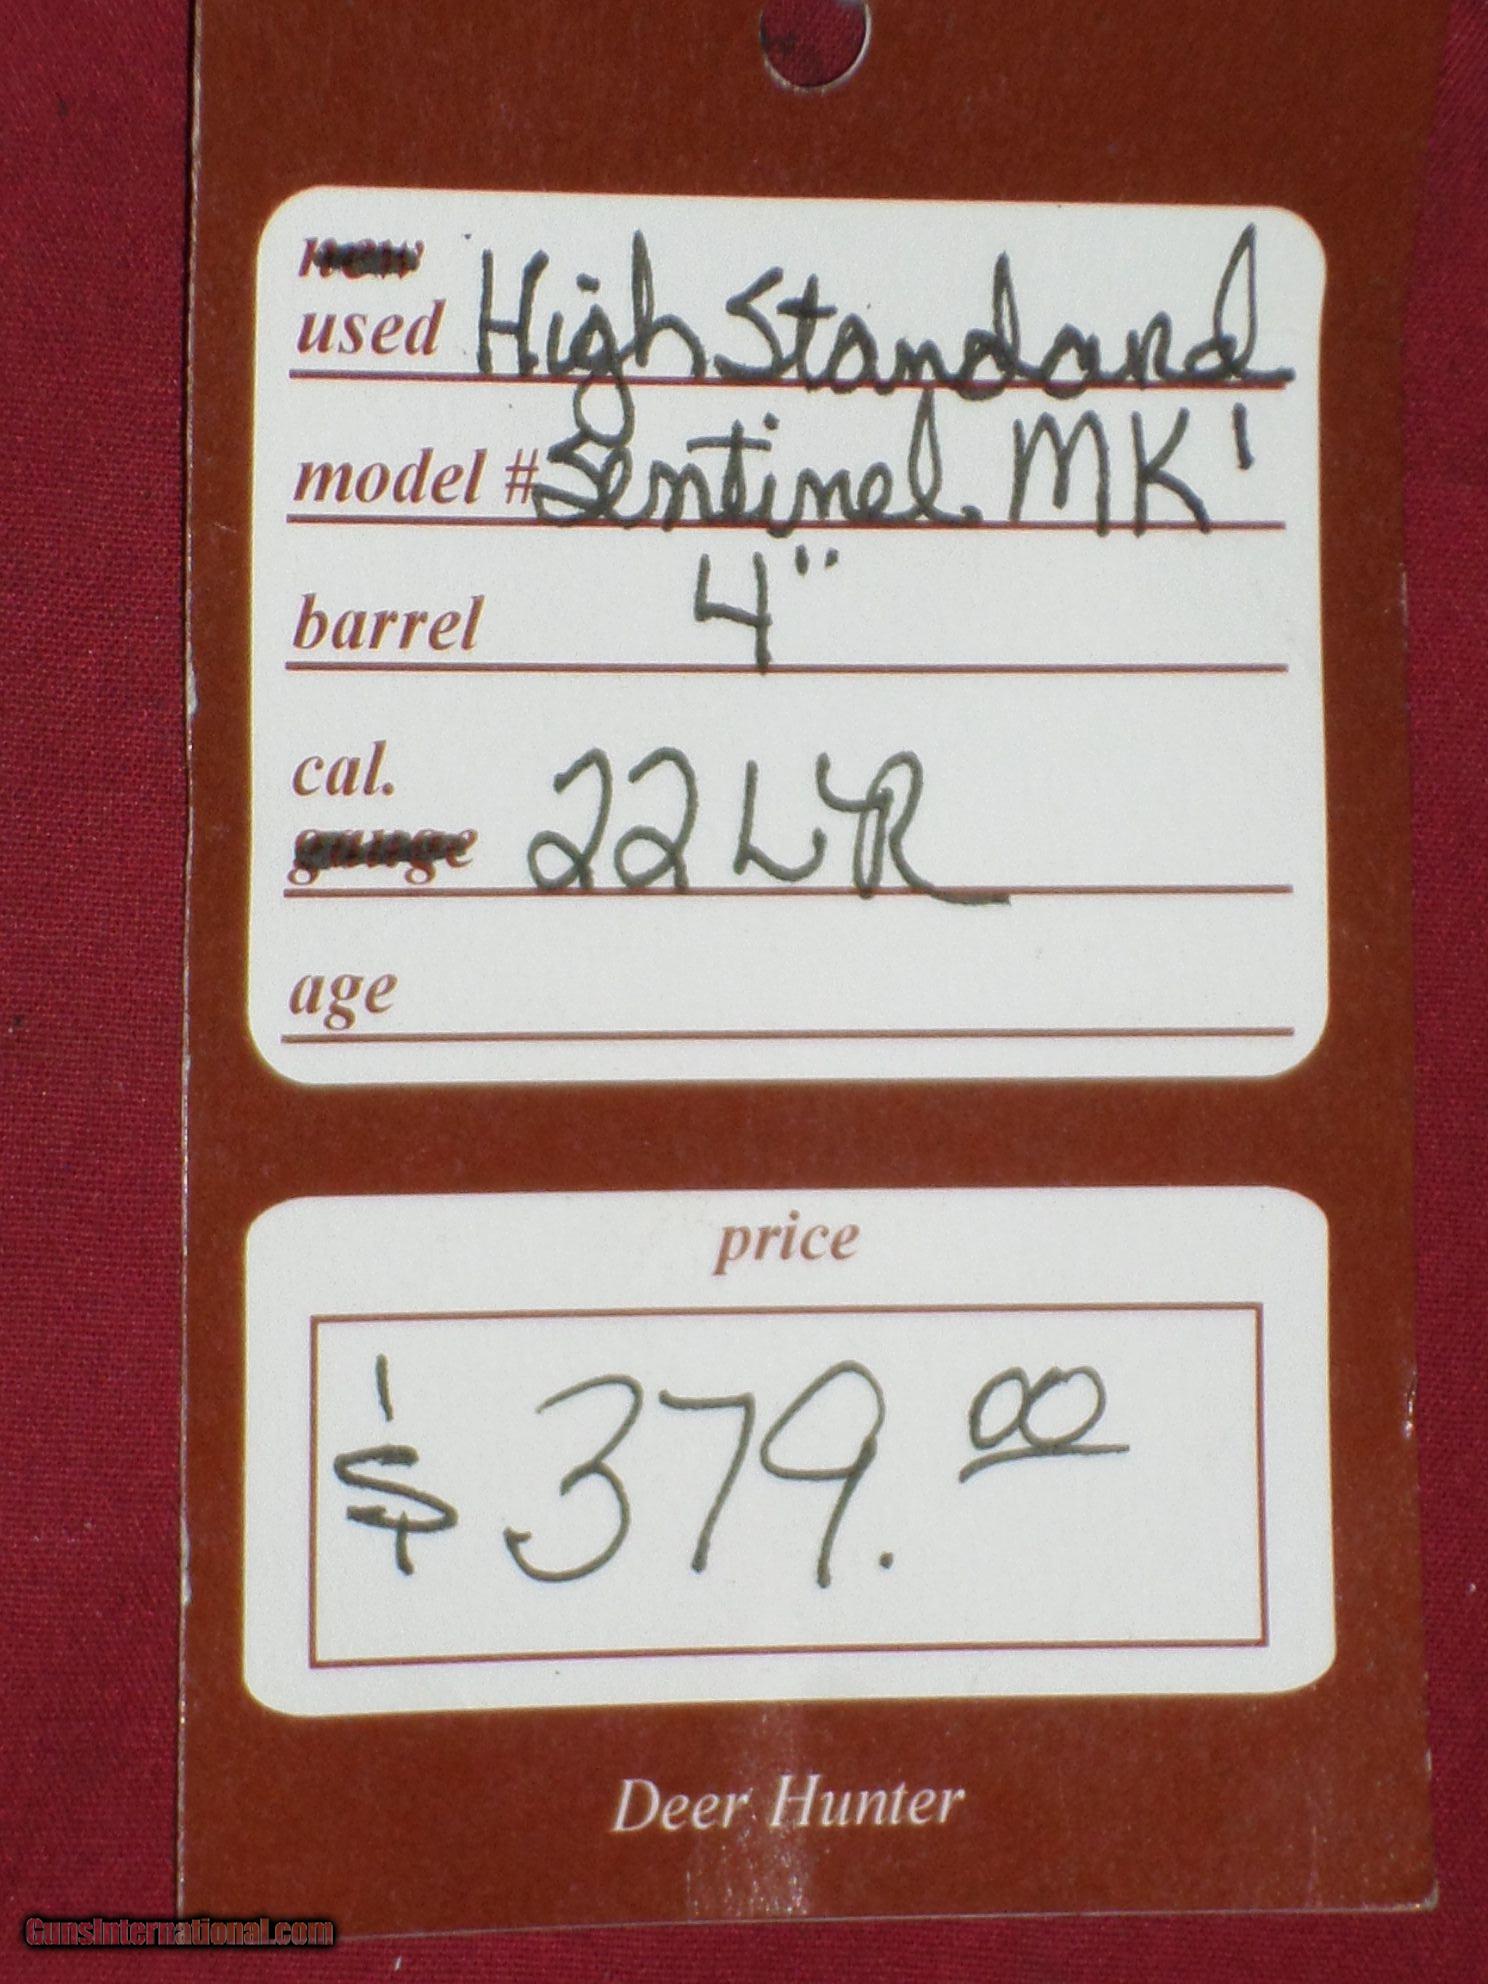 new
used High Standard
model # Sentinel MK 1
barrel 4"
cal. 22 LR
gauge
age
price
$ 379.00
Deer Hunter
GunsInternational.com